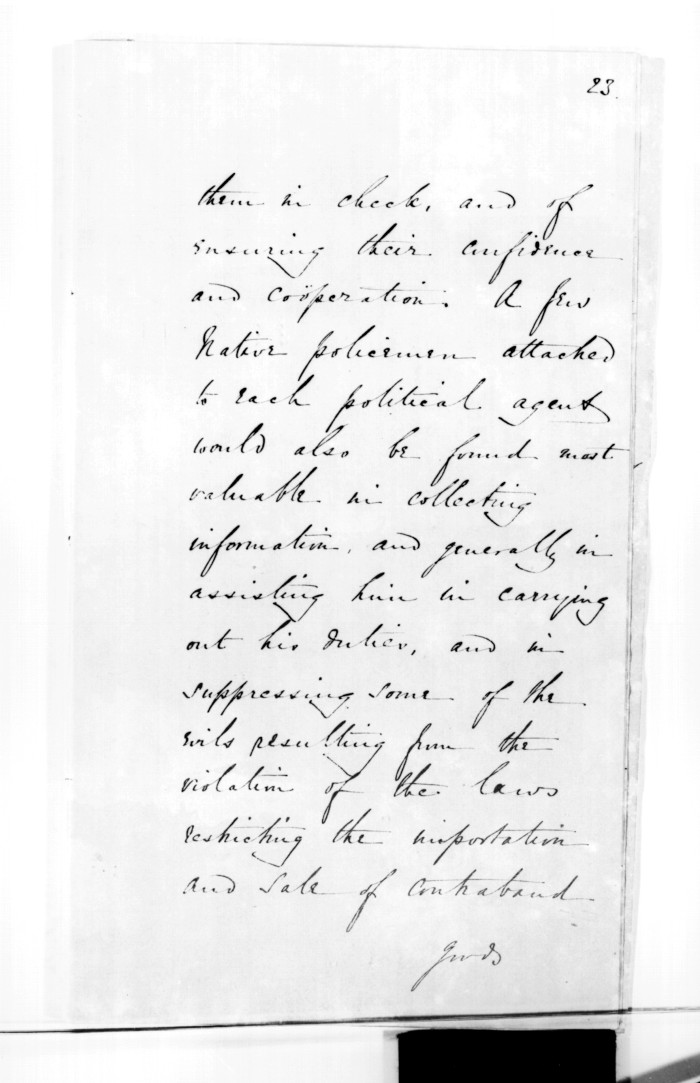 23.
them in check, and of
ensuring their confidence
and coöperation. A few
Native policemen attached
to each political agent
would also be found most
valuable in collecting
information, and generally in
assisting him in carrying
out his duties, and in
suppressing some of the
evils resulting from the
violation of the laws
restricting the importation
and sale of contraband
goods